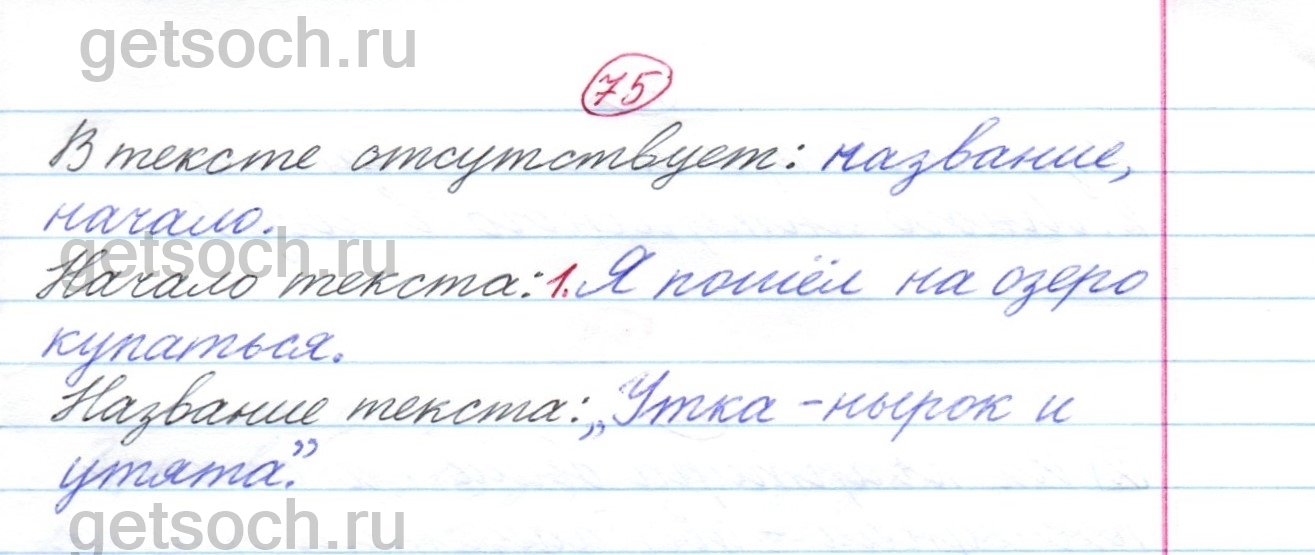 getsoch.ru
75
В тексте отсутствует: название,
начало.
getsoch.ru
Начало текста: 1. Я пошёл на озеро
купаться.
Название текста: „Утка-нырок и
утята."
getsoch.ru